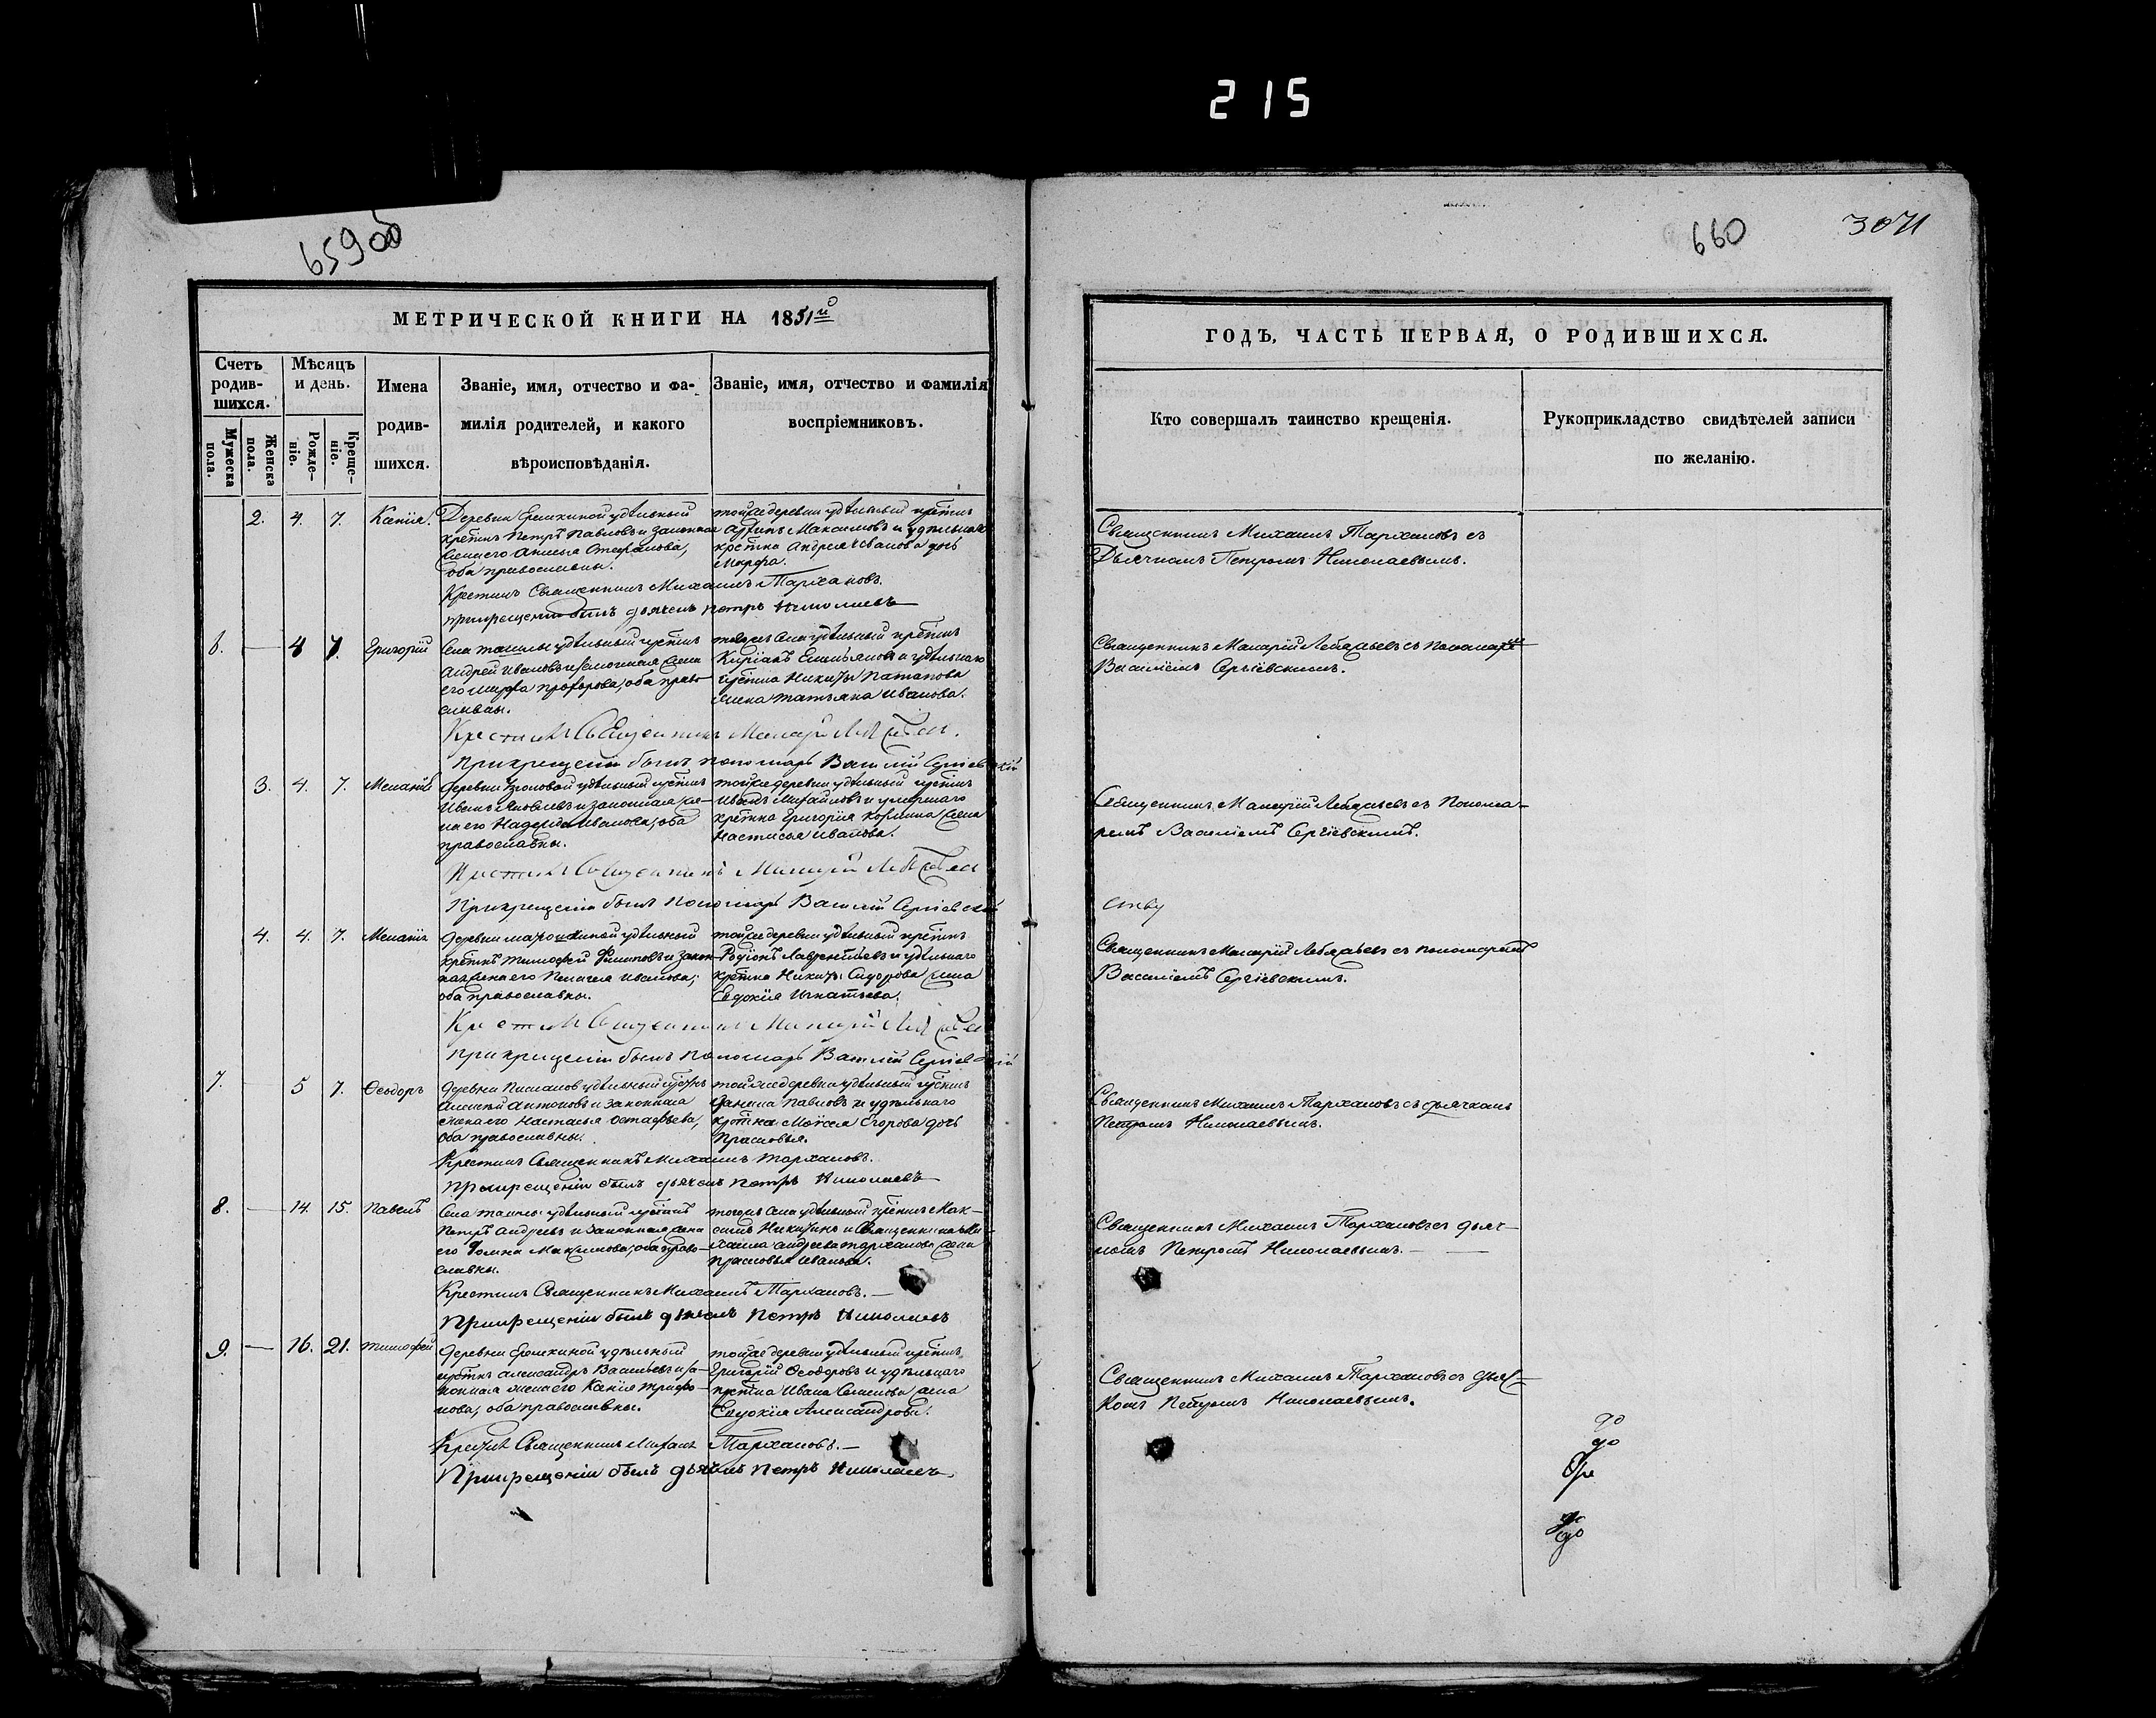 215
659об
660
3071
МЕТРИЧЕСКОЙ КНИГИ НА 1851й
Счетъ родив-шихся.
Мѣсяцъ и день.
Имена родив-шихся.
Званіе, имя, отчество и фа-
милія родителей, и какого
вѣроисповѣданія.
Званіе, имя, отчество и фамилія
воспріемниковъ.
Мужеска пола.
Женска пола.
Рожде-ніе.
Креще-ніе.
2. 4. 7. Ксенія.
Деревни Еремкиной удѣльный
крестнъ Петръ Павловъ и законная
жена его Стефанова,
оба православны.
тойже деревни удѣльный крестнъ
Максимовъ и удѣльнаго
крстна Андрея Иванова дочь
Марфа.
Крестилъ Священникъ Михаилъ Тархановъ.
При крещеніи былъ дьячекъ Петръ Николаевъ
6. — 4 7. Григорій
Села удѣльный крестнъ
Андрей Ивановъ и законная жена
его Марфа Прохорова, оба право-
славны.
тогоже села удѣльный крестнъ
Киріакъ Емельяновъ и удѣльнаго
крестна Никиты Потапова
жена Татьяна Иванова.
Крестилъ Священникъ Макарій
При крещеніи былъ пономарь Василій Сергіевскій
3. 4. 7. Меланія
Деревни удѣльный крестнъ
Иванъ Яковлевъ и законная же-
на его Надежда Иванова, оба
православны.
тойже деревни удѣльный крестнъ
Иванъ Михайловъ и умершаго
крестна Григорія жена
Настасья Иванова.
Крестилъ Священникъ Макарій
При крещеніи былъ пономарь Василій Сергіевскій
4. 4. 7. Меланія
Деревни удѣльный
крестнъ Тимофей Филиповъ и закон-
ная жена его Пелагея Иванова,
оба православны.
тойже деревни удѣльный крестнъ
Родіонъ Лаврентьевъ и удѣльнаго
крестна Никиты Сидорова жена
Евдокія Игнатьева.
Крестилъ Священникъ Макарій
При крещеніи былъ пономарь Василій Сергіевскій
7. 5 7. Ѳеодоръ
Деревни удѣльный крстнъ
Алексѣй Антоновъ и законная
жена его Настасья Остафьева,
оба православны.
тойже деревни удѣльный крестнъ
Данила Павловъ и удѣльнаго
крстна Моисея Егорова дочь
Прасковья.
Крестилъ Священникъ Михаилъ Тархановъ.
При крещеніи былъ дьячекъ Петръ Николаевъ
8. — 14. 15. Павелъ
Села удѣльный крестнъ
Петръ Андреевъ и законная жена
его Максимова, оба право-
славны.
тогоже села удѣльный крстнъ Мак-
симъ Никитинъ и Священника Ми-
хаила Андреева Тарханова жена
Прасковья Иванова.
Крестилъ Священникъ Михаилъ Тархановъ. —
При крещеніи былъ дьячекъ Петръ Николаевъ
9. — 16. 21. Тимофей
Деревни Еремкиной удѣльный
крстнъ Александръ Васильевъ и за-
конная жена его Ксенія Трифо-
нова, оба православны.
тойже деревни удѣльный крестнъ
Григорій Ѳеодоровъ и удѣльнаго
крестна Ивана Семенова жена
Евдокія Александрова.
Крестилъ Священникъ Михаилъ Тархановъ. —
При крещеніи былъ дьячекъ Петръ Николаевъ
ГОДЪ, ЧАСТЬ ПЕРВАЯ, О РОДИВШИХСЯ.
Кто совершалъ таинство крещенія.
Рукоприкладство свидѣтелей записи
по желанію.
Священникъ Михаилъ Тархановъ съ
Дьячкомъ Петромъ Николаевымъ.
Священникъ Макарій Лебедевъ съ Пономаремъ
Василіемъ Сергіевскимъ.
Священникъ Макарій Лебедевъ съ Понома-
ремъ Василіемъ Сергіевскимъ.
Священникъ Макарій Лебедевъ съ пономаремъ
Василіемъ Сергіевскимъ.
Священникъ Михаилъ Тархановъ съ дьячкомъ
Петромъ Николаевымъ.
Священникъ Михаилъ Тархановъ съ дьяч-
комъ Петромъ Николаевымъ. —
Священникъ Михаилъ Тархановъ съ дьяч-
комъ Петромъ Николаевымъ.